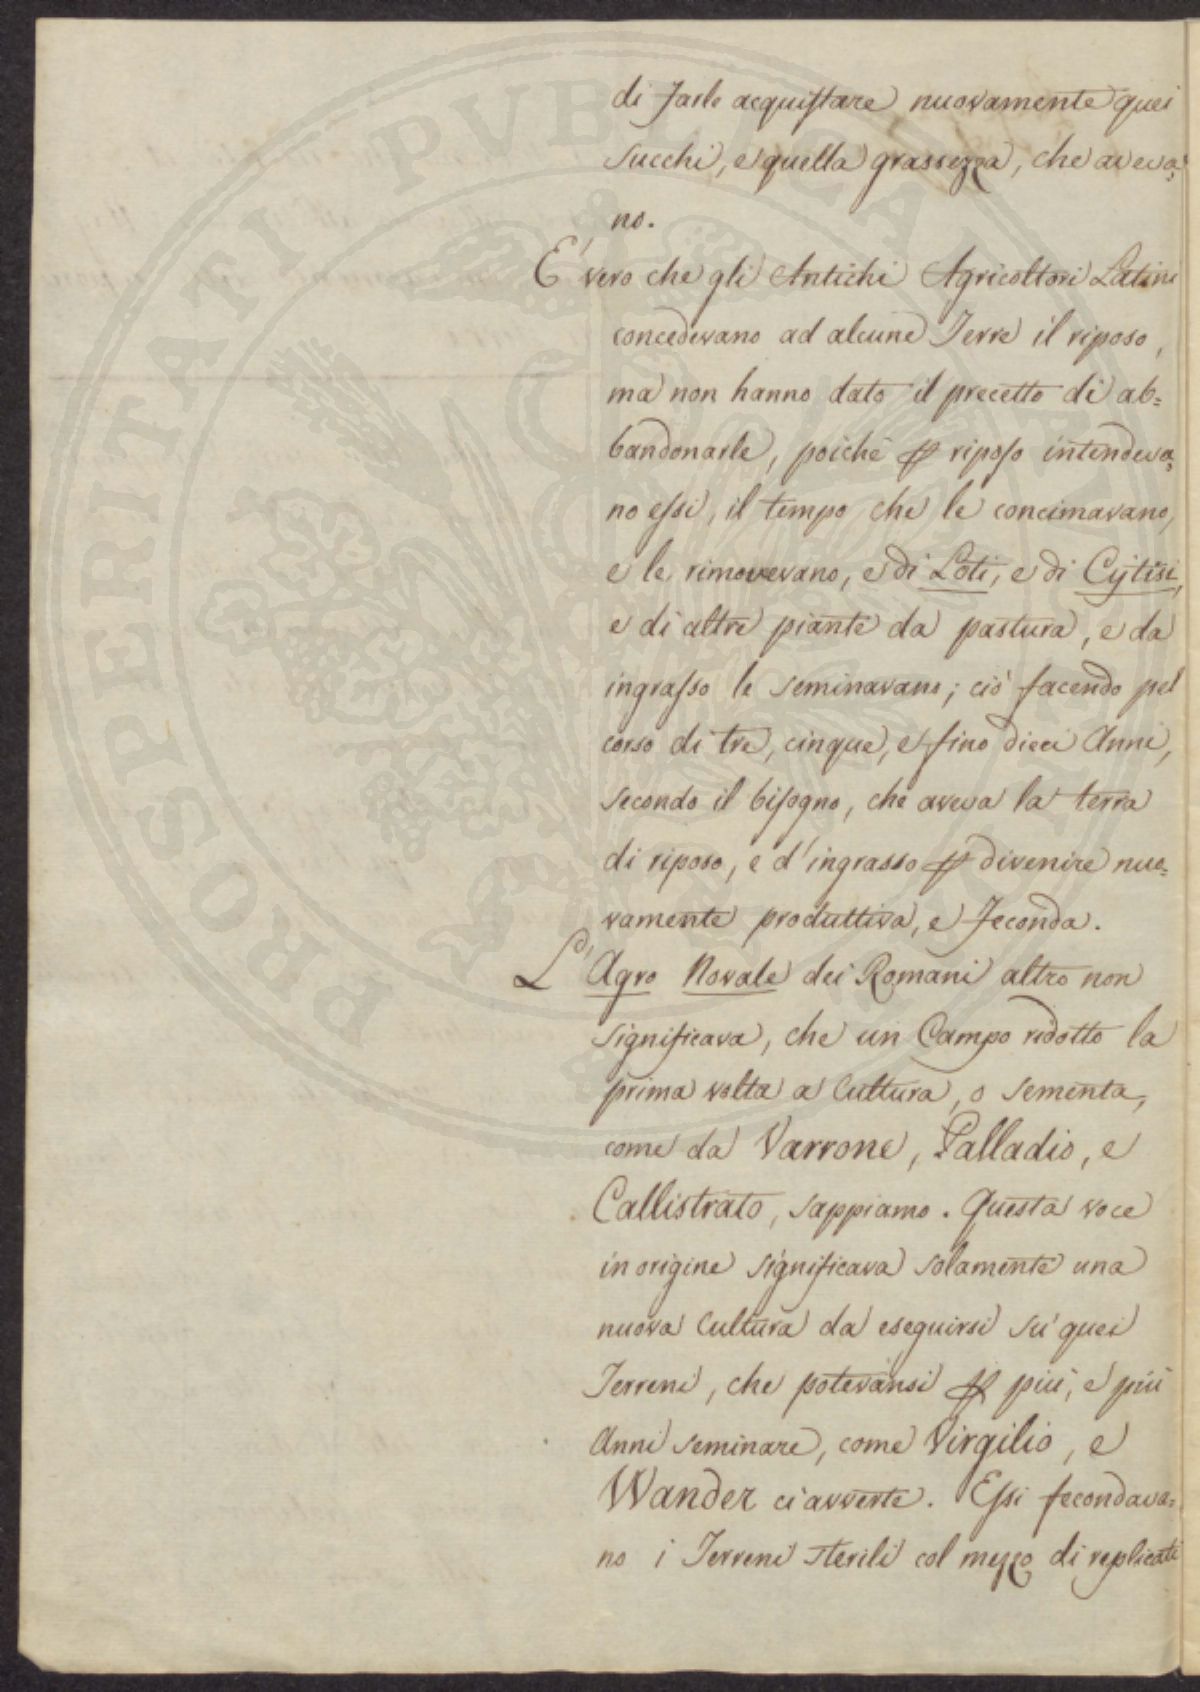 di farle acquistare nuovamente quei
succhi, e quella grassezza, che aveva=
no.
E' vero che gli Antichi Agricoltori Latini
concedevano ad alcune Terre il riposo,
ma non hanno dato il precetto di ab=
bandonarle, poichè ꝑ riposo intendeva=
no essi, il tempo che le concimavano,
e le rimovevano, e di Loti, e di Cÿtisi,
e di altre piante da pastura, e da
ingrasso le seminavano; ciò facendo pel
corso di tre, cinque, e fino dieci Anni,
secondo il bisogno, che aveva la terra
di riposo, e d'ingrasso ꝑ divenire nuo=
vamente produttiva, e feconda.
L' Agro Novale dei Romani altro non
significava, che un Campo ridotto la
prima volta a Cultura, o sementa,
come da Varrone, Palladio, e
Callistrato, sappiamo. Questa voce
in origine significava solamente una
nuova Cultura da eseguirsi su quei
Terreni, che potevansi ꝑ più, e più
Anni seminare, come Virgilio, e
Wander ci avverte. Essi fecondava=
no i Terreni sterili col mezzo di replicati
PROSPERITATI PVBLICAE